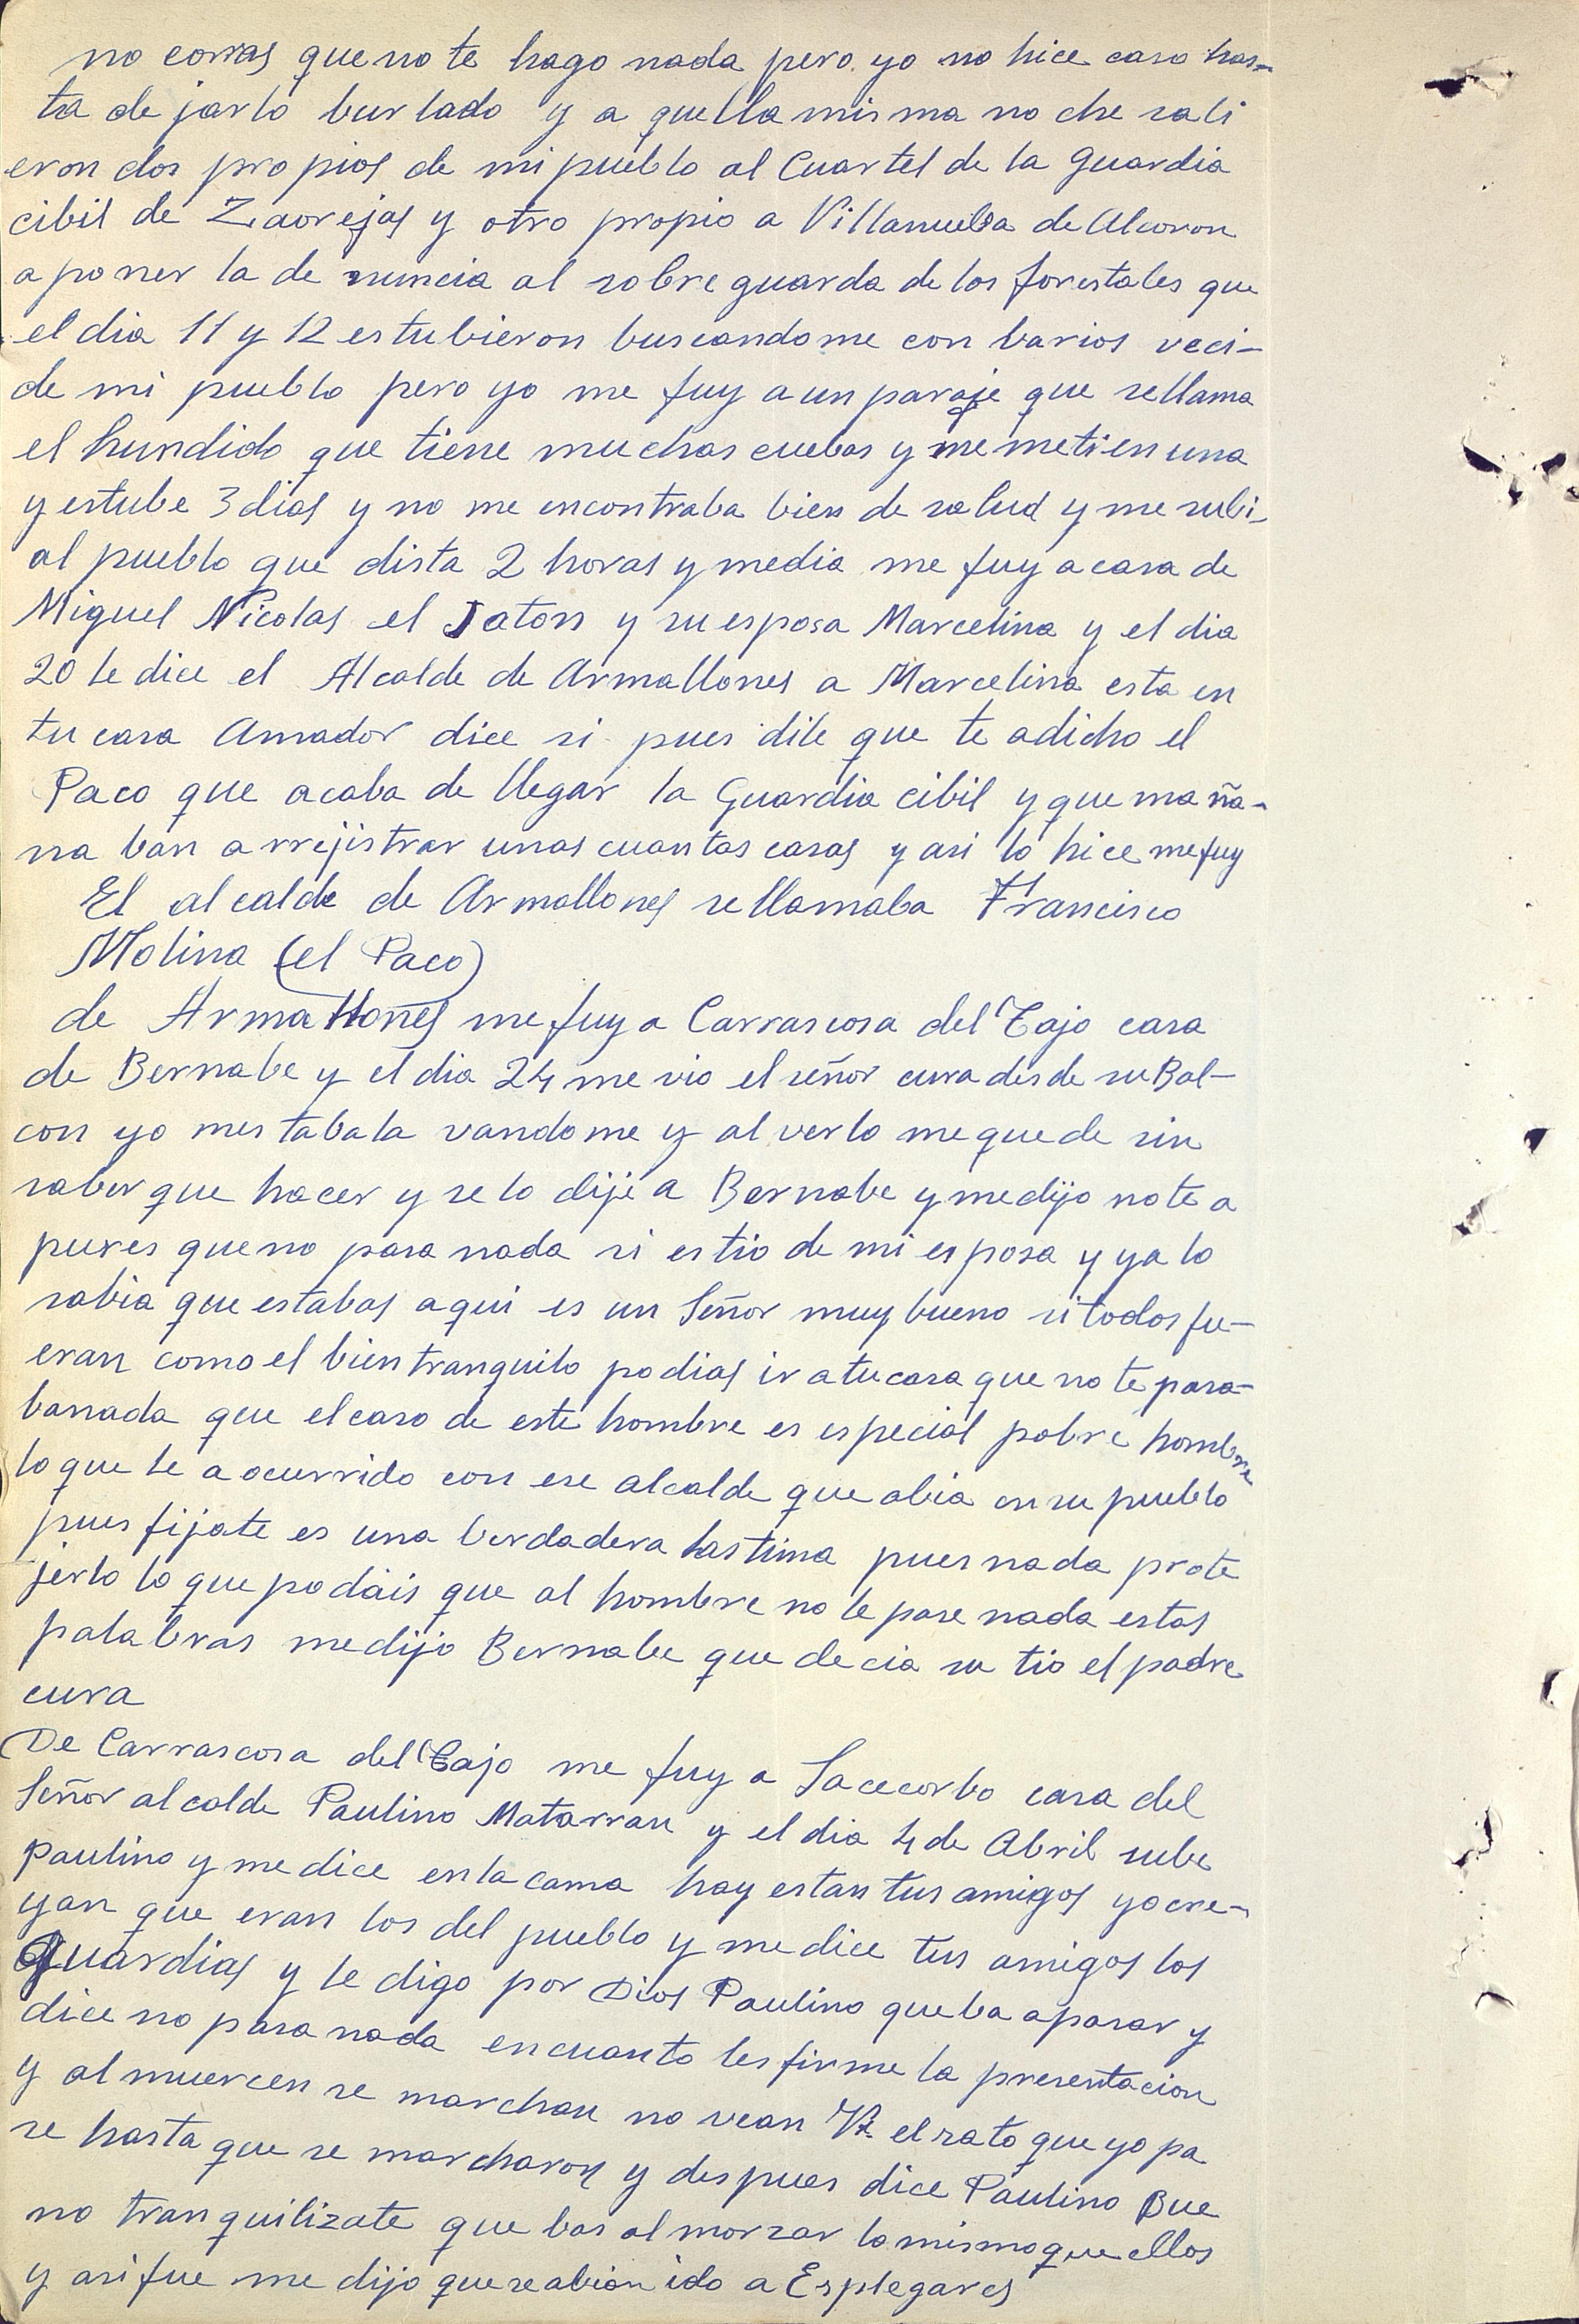 no corras que no te hago nada pero yo no hice caso has-
ta de jarlo burlado y a quella misma no che sali
eron dos propios de mi pueblo al Cuartel de la Guardia
cibil de Zaorejas y otro propio a Villanueba de Alcoron
a poner la de nuncia al sobre guarda de los forestales que
el dia 11 y 12 estubieron buscandome con barios veci-
de mi pueblo pero yo me fuy a un paraje que se llama
el hundido que tiene muchas cuebas y me meti en una
y estube 3 dias y no me encontraba bien de salud y me subi
al pueblo que dista 2 horas y media me fuy a casa de
Miguel Nicolas el Jaton y su esposa Marcelina y el dia
20 le dice el Alcalde de Armallones a Marcelina esta en
tu casa Amador dice si pues dile que te a dicho el
Paco que acaba de llegar la Guardia cibil y que maña-
na ban a rrejistrar unas cuantas casas y asi lo hice me fuy
El alcalde de Armallones se llamaba Francisco
Molina (el Paco)
de Armallones me fuy a Carrascosa del Tajo casa
de Bernabe y el dia 24 me vio el señor cura desde su Bal-
con yo mestaba la vandome y al verlo me que de sin
saber que hacer y se lo dije a Bernabe y me dijo no te a
pures que no pasa nada si es tio de mi esposa y ya lo
sabia que estabas aqui es un Señor muy bueno si todos fu-
eran como el bien tranquilo podias ir a tu casa que no te pasa-
ba nada que el caso de este hombre es especial pobre hombre
lo que le a ocurrido con ese alcalde que abia en su pueblo
pues fijate es una berdadera lastima pues nada prote
jerlo lo que podais que al hombre no le pase nada estas
palabras me dijo Bernabe que decia su tio el padre
cura
De Carrascosa del Tajo me fuy a Sacecorbo casa del
Señor alcalde Paulino Matarran y el dia 4 de Abril sube
Paulino y me dice en la cama hay estan tus amigos yo cre-
yan que eran los del pueblo y me dice tus amigos los
Guardias y le digo por Dios Paulino que ba a pasar y
dice no pasa nada en cuanto les firme la presentacion
y al muercen se marchan no vean Vs. el rato que yo pa
se hasta que se marcharon y despues dice Paulino Bue
no tranquilizate que bas al morzar lo mismo que ellos
y asi fue me dijo que se abian ido a Esplegares